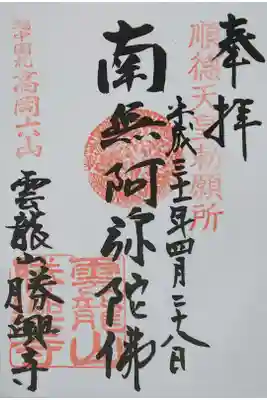 奉拝
順徳天皇勅願所
平成三十一年四月二十八日
南無阿弥陀佛
雲龍山勝興寺
越中国礼高岡六山
雲龍山
勝興寺